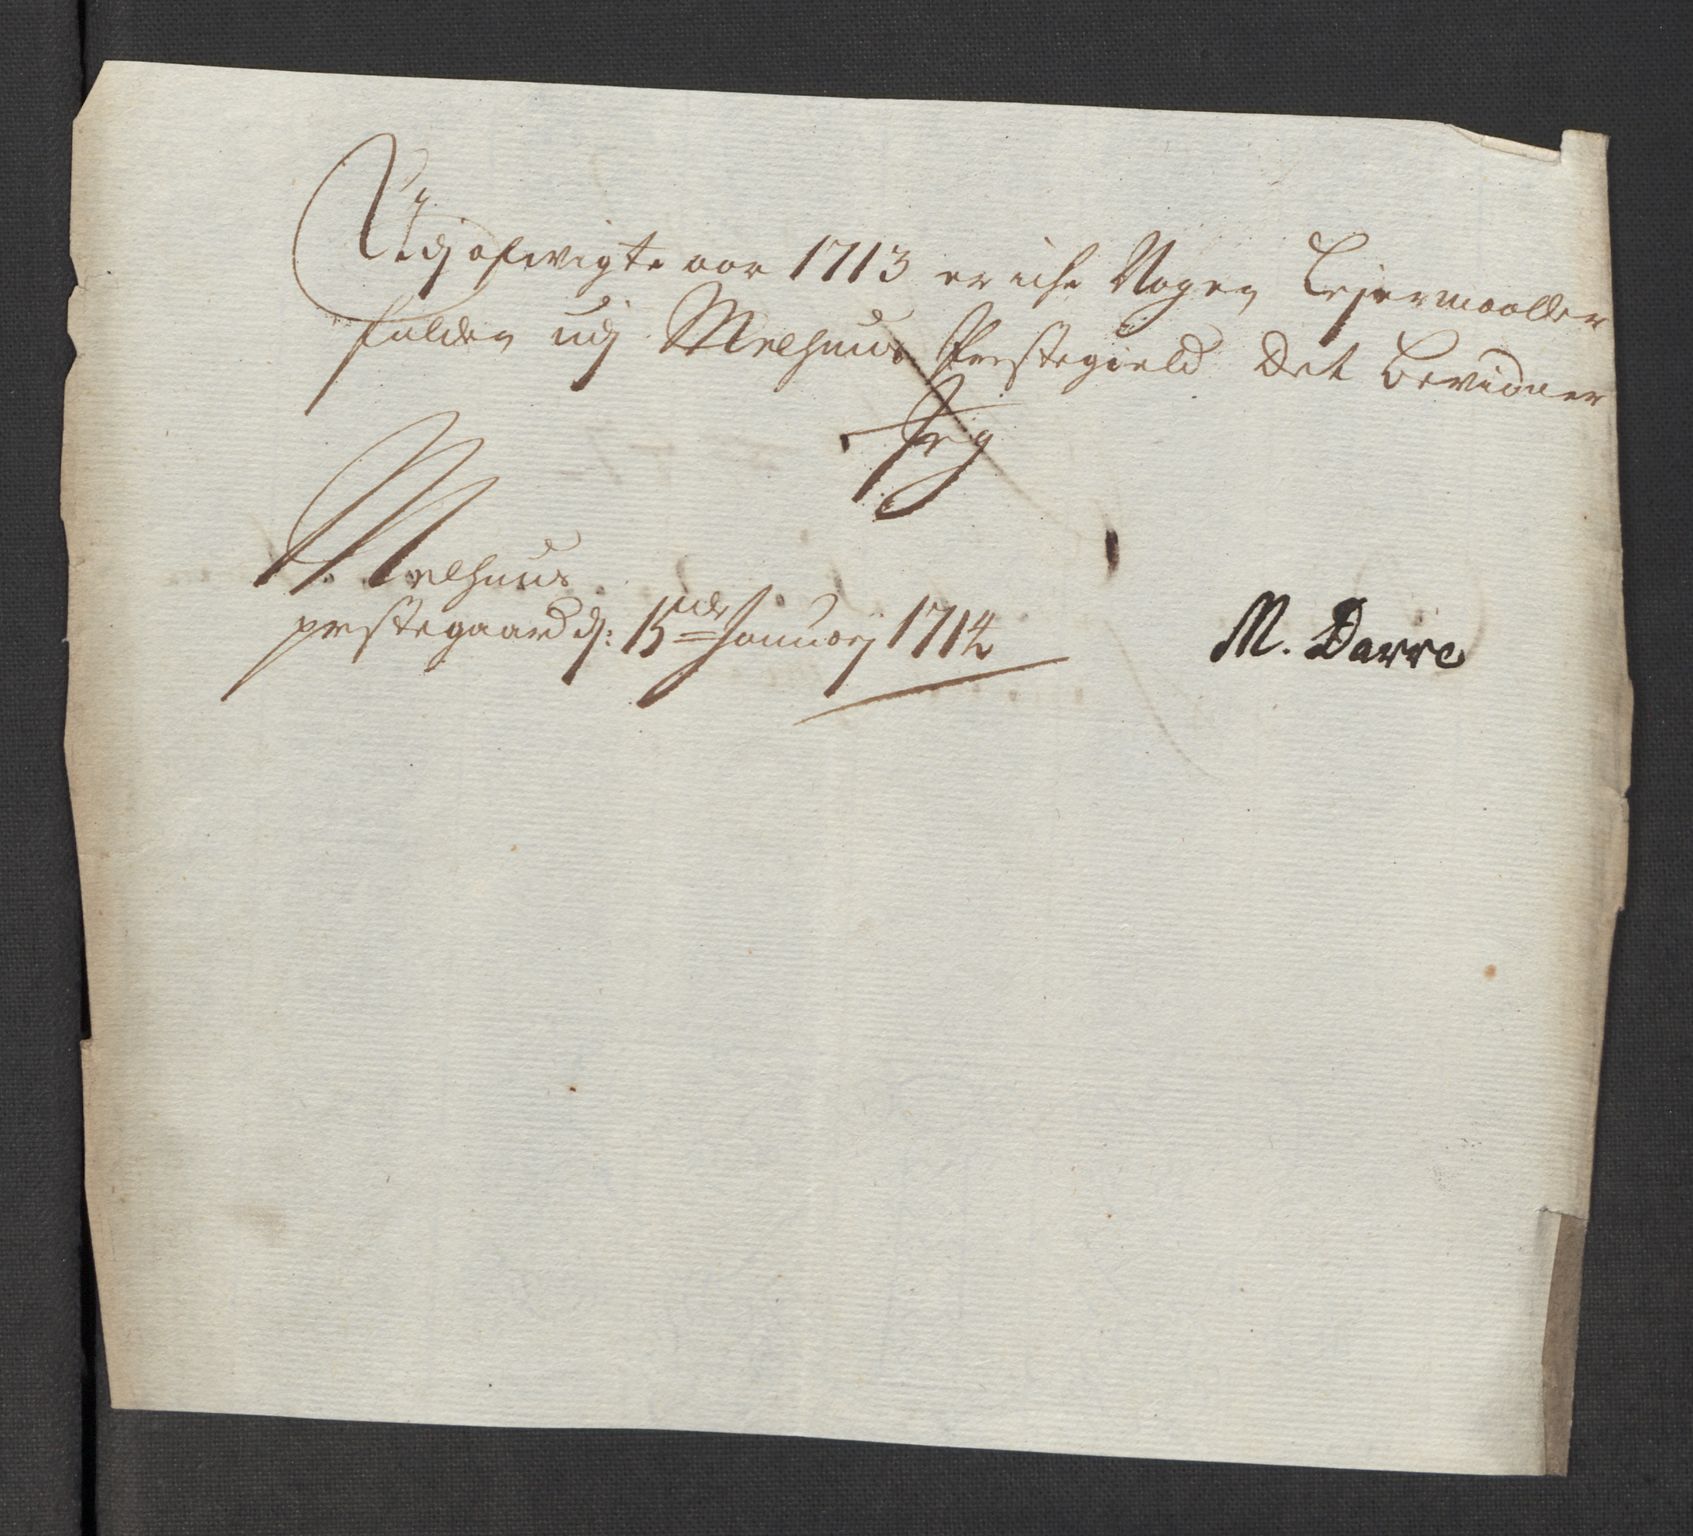 Udj afvigte aar 1713 er iche Nogen Leiermaaller
falden udj Melhuus Prestegield Det bevidner
Jeg
Melhuus
prestegaard dj: 15de January 1714
M. Darre